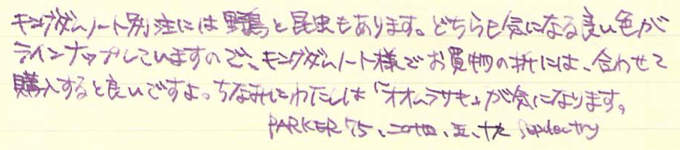 キングダムノート別注には野鳥と昆虫もあります。どちらも気になる良い色が
ラインナップしていますので、キングダムノート様でお買物の折には、合わせて
購入すると良いですよ。ちなみにわたしは「オオムラサキ」が気になります。
PARKER 75、